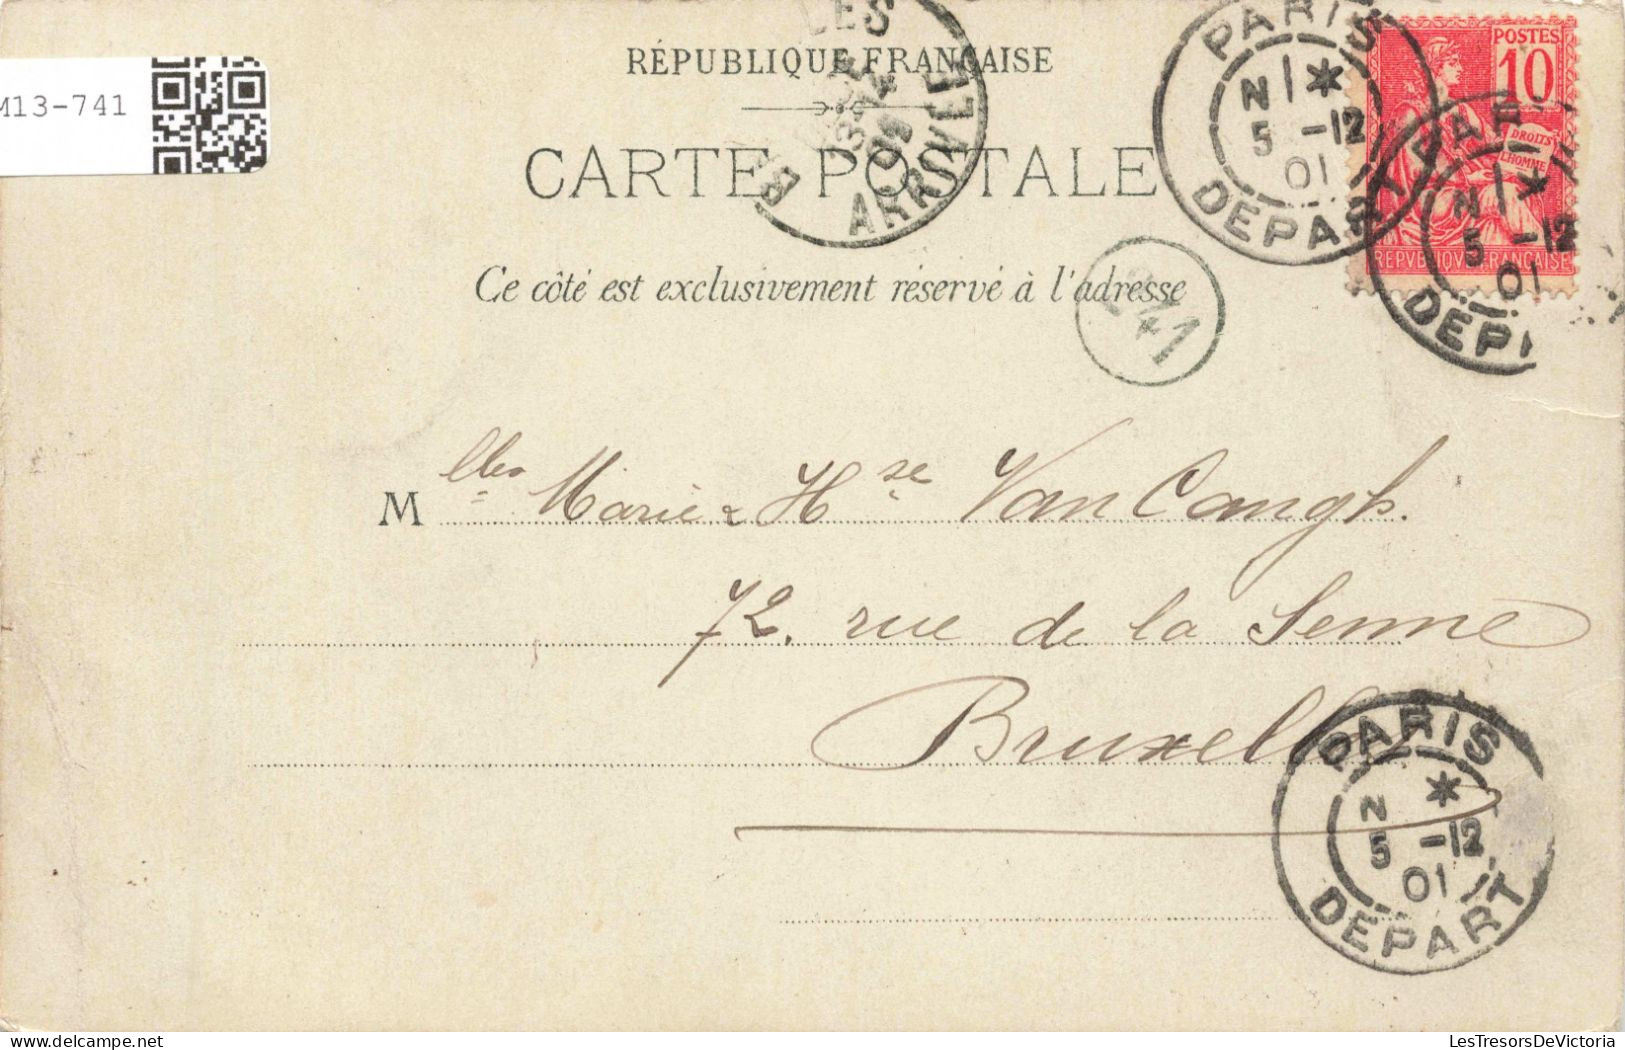 M13-741
RÉPUBLIQUE FRANÇAISE
CARTE POSTALE
Ce côté est exclusivement réservé à l'adresse
ARRIVEE
PARIS
N *
5 -12
01
DEPART
POSTES
10
DROITS
L'HOMME
REPVBLIQVE FRANCAISE
N *
5 -12
01
241
Mlles Marie & Hse Van Cangh.
72, rue de la Senne
Bruxelles
PARIS
N *
5 -12
01
DEPART
LesTresorsDeVictoria.com